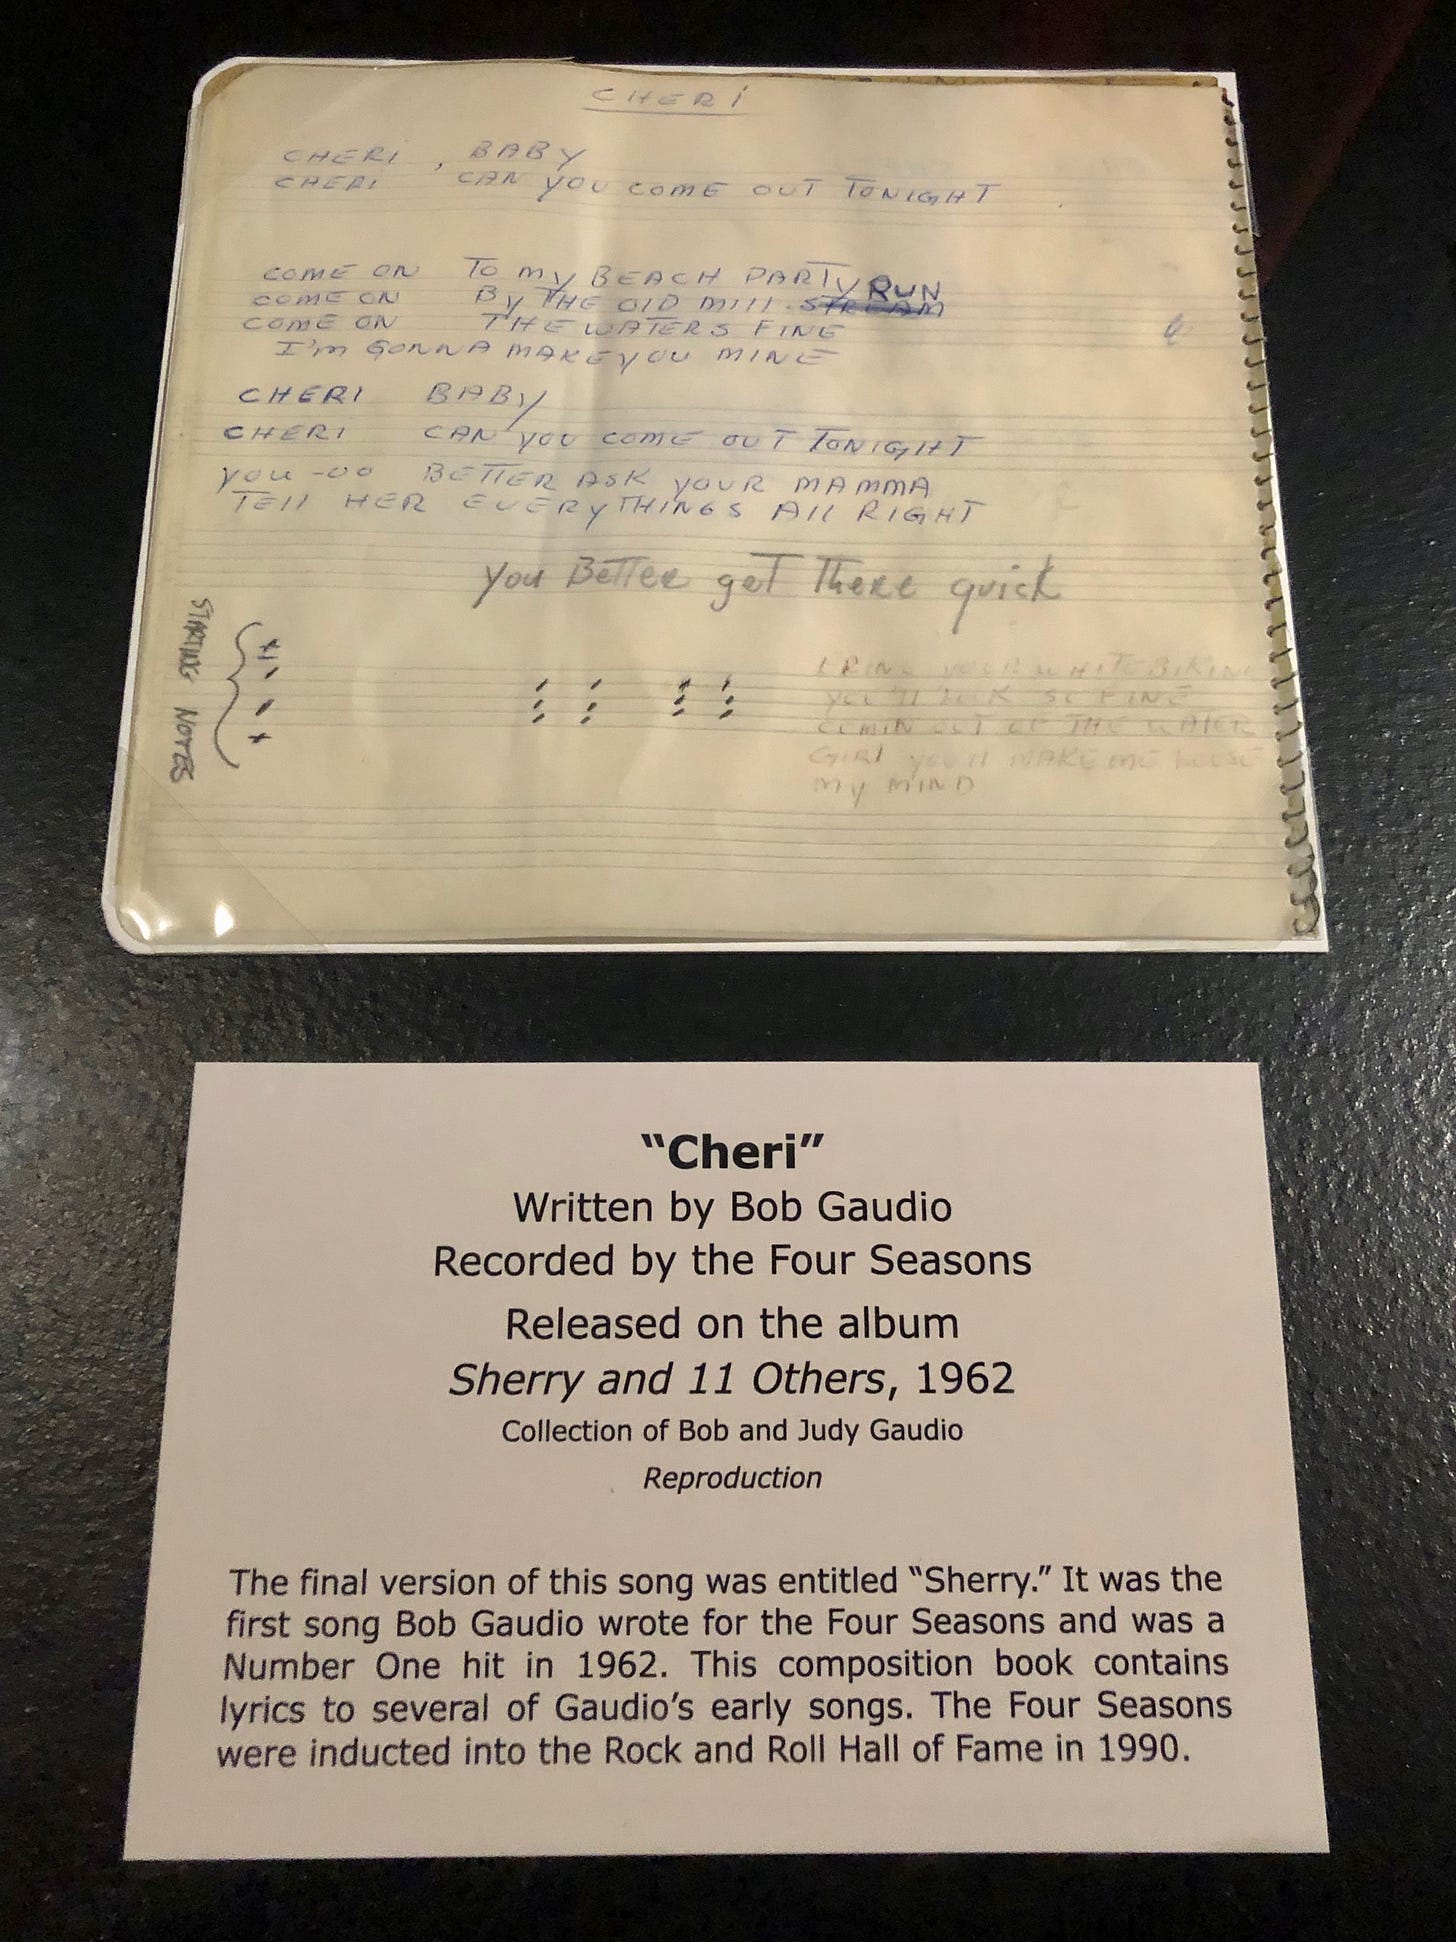 CHERI
CHERI, BABY
CHERI CAN YOU COME OUT TONIGHT
COME ON TO MY BEACH PARTY
COME ON BY THE OLD MILL STREAM RUN
COME ON THE WATERS FINE
I'M GONNA MAKE YOU MINE
CHERI BABY
CHERI CAN YOU COME OUT TONIGHT
YOU-OO BETTER ASK YOUR MAMMA
TELL HER EVERYTHINGS ALL RIGHT
You Better get There quick
STARTING NOTES
BRING YOUR WHITE BIKINI
YOU'LL LOOK SO FINE
COMIN OUT OF THE WATER
GIRL YOU'LL MAKE ME LOOSE
MY MIND
“Cheri”
Written by Bob Gaudio
Recorded by the Four Seasons
Released on the album
Sherry and 11 Others, 1962
Collection of Bob and Judy Gaudio
Reproduction
The final version of this song was entitled “Sherry.” It was the
first song Bob Gaudio wrote for the Four Seasons and was a
Number One hit in 1962. This composition book contains
lyrics to several of Gaudio’s early songs. The Four Seasons
were inducted into the Rock and Roll Hall of Fame in 1990.